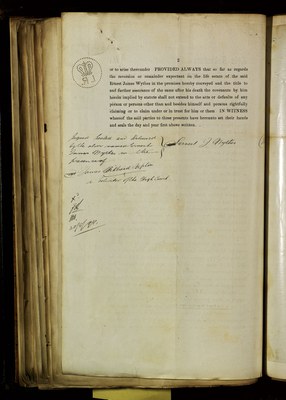 2
or to arise thereunder PROVIDED ALWAYS that so far as regards
the reversion or remainder expectant in the life estate of the said
Ernest James Wythes in the premises hereby conveyed and the title to
and further assurance of the same after his death the covenants by him
herein implied by statute shall not extend to the acts or defaults of any
person or persons other than and besides himself and persons rightfully
claiming or to claim under or in trust for him or them IN WITNESS
whereof the said parties to these presents have hereunto set their hands
and seals the day and year first above written.
Signed Sealed and Delivered
by the above named Ernest
James Wythes in the
presence of
Ernest J Wythes
a Solicitor of the High Court